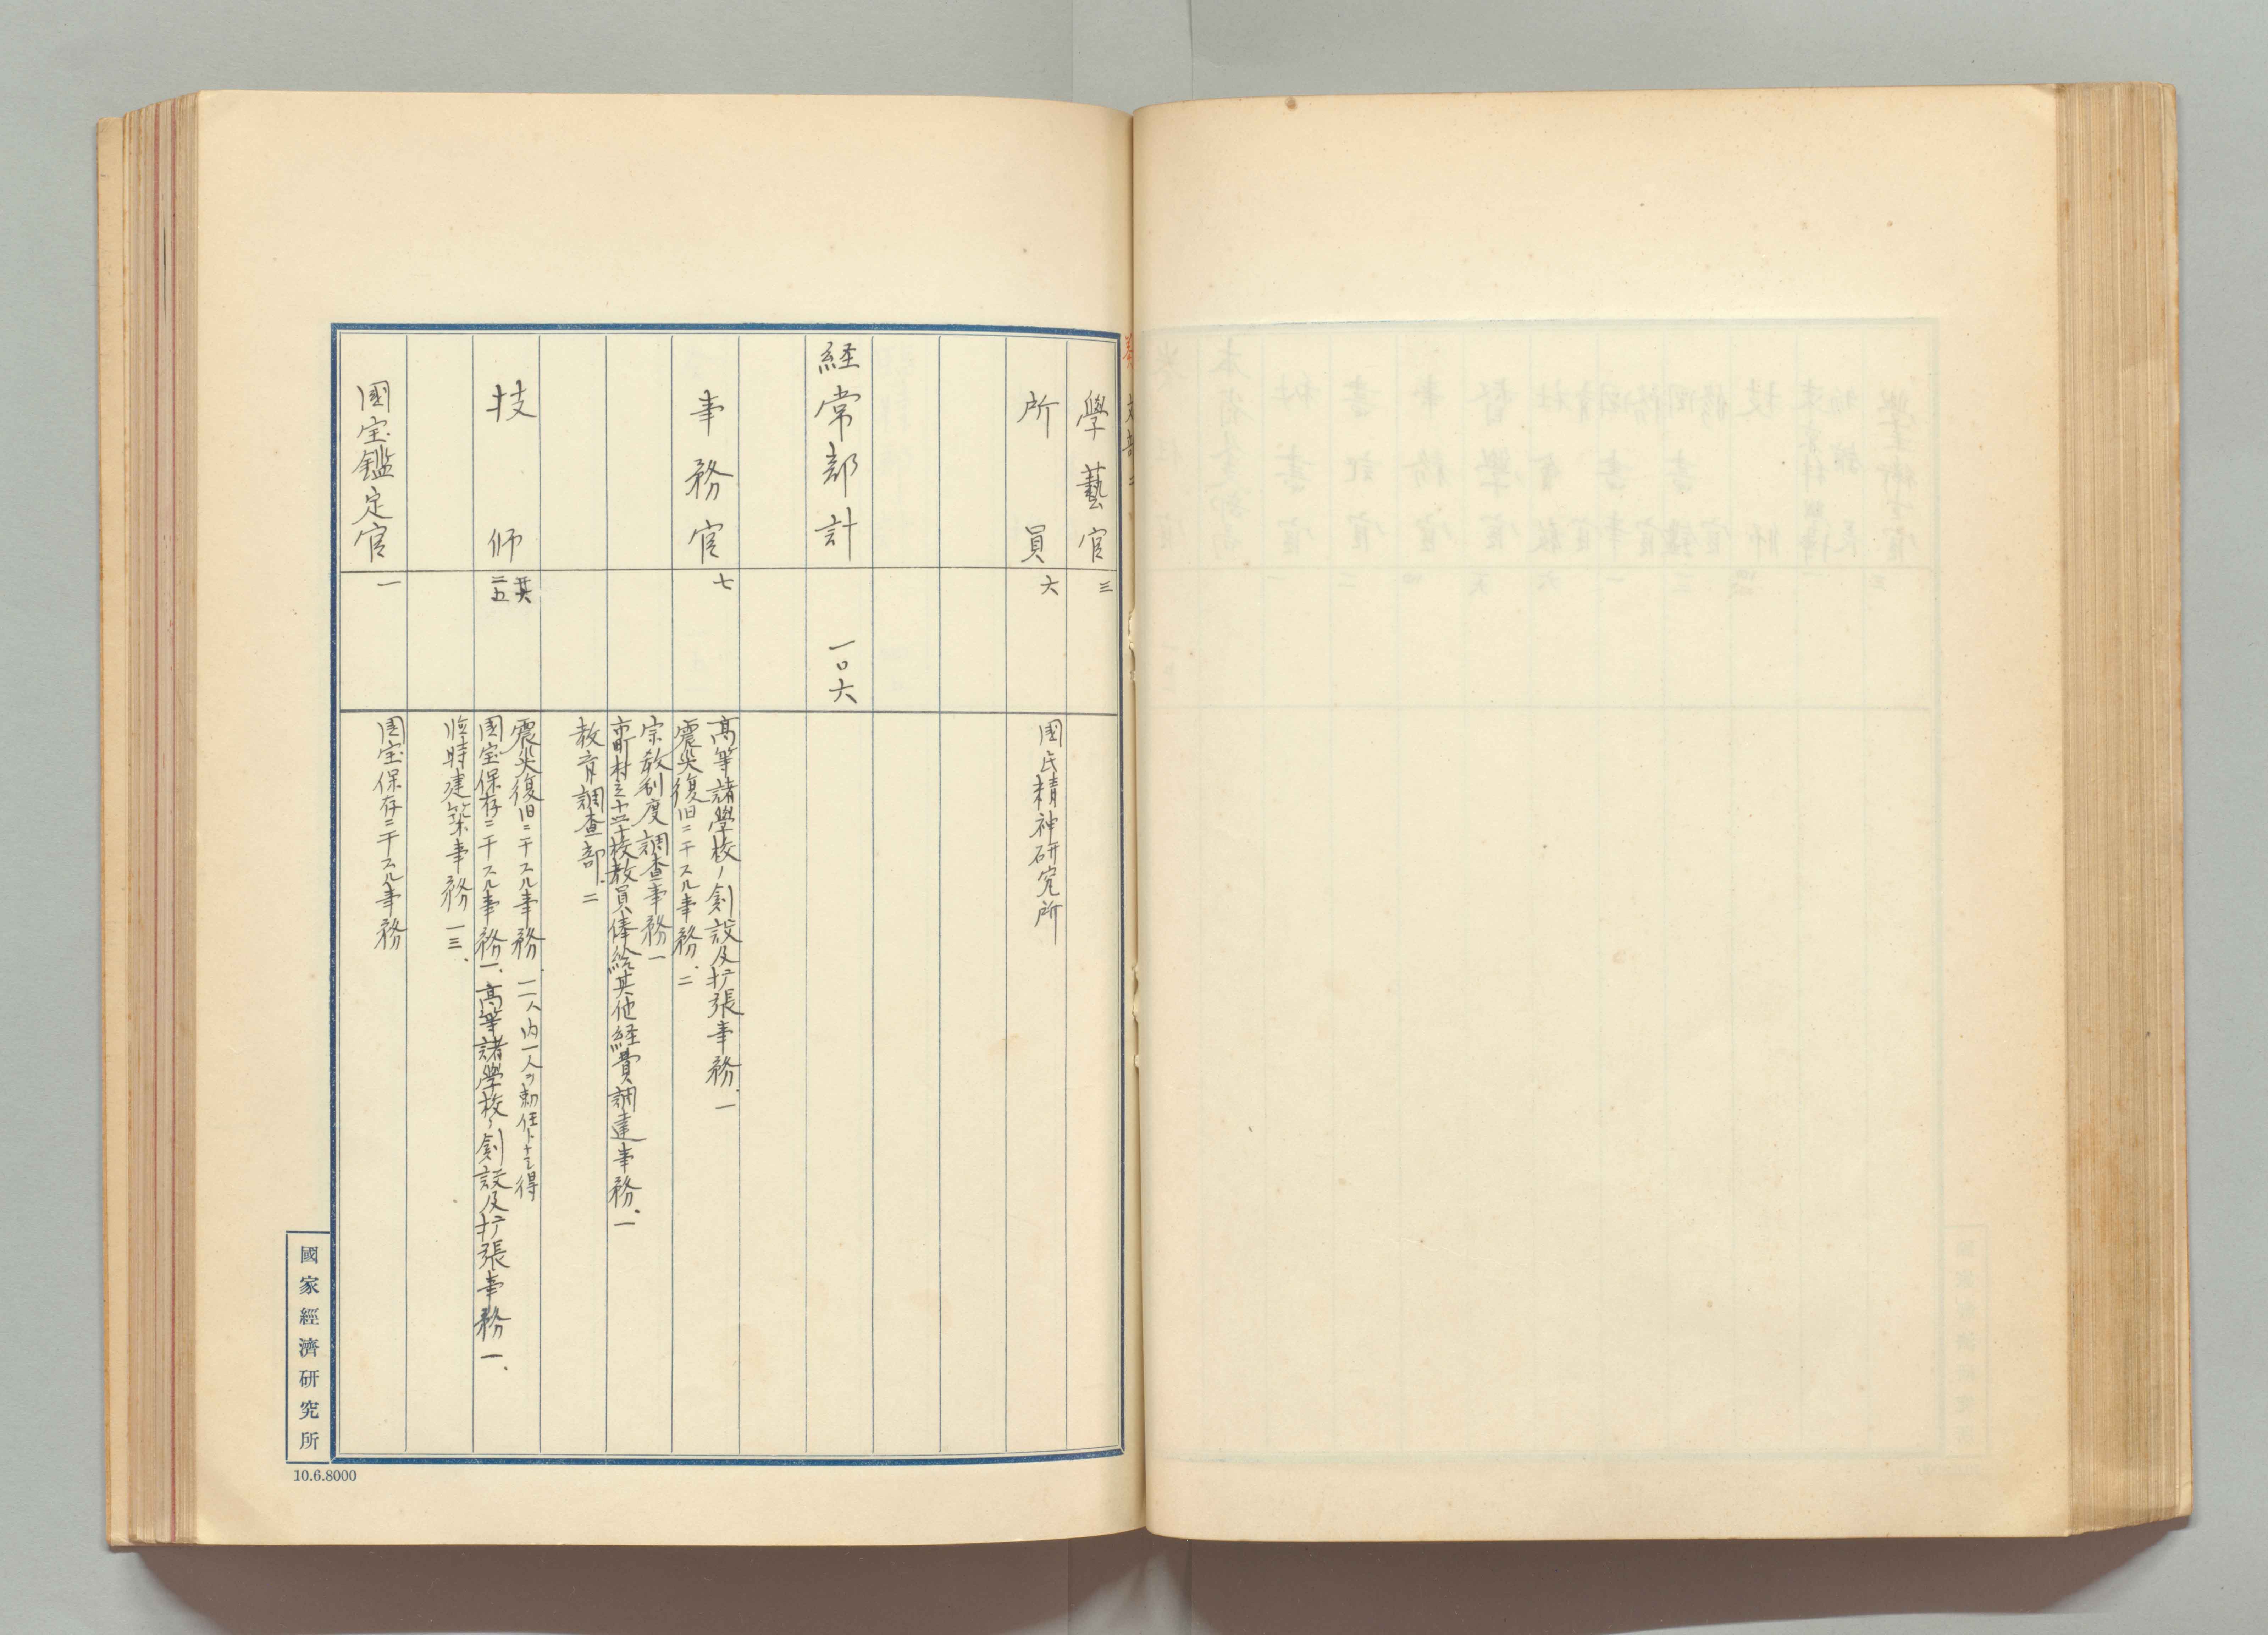 文部 二
學藝官 三
所員 六 國民精神研究所
経常部計 一〇六
事務官 七 高等諸學校ノ創設及扩張事務、一
震災復旧ニ干スル事務、二
宗教制度調査事務 一
市町村立小学校教員俸給其他経費調達事務、一
教育調査部、二
技師 二五 震災復旧ニ干スル事務、 一人内一人ヲ勅任トナシ得
国宝保存ニ干スル事務 一、高等諸學校ノ創設及扩張事務 一、
臨時建築事務 一三、
國宝鑑定官 一 国宝保存ニ干スル事務
國家經濟研究所
10.6.8000